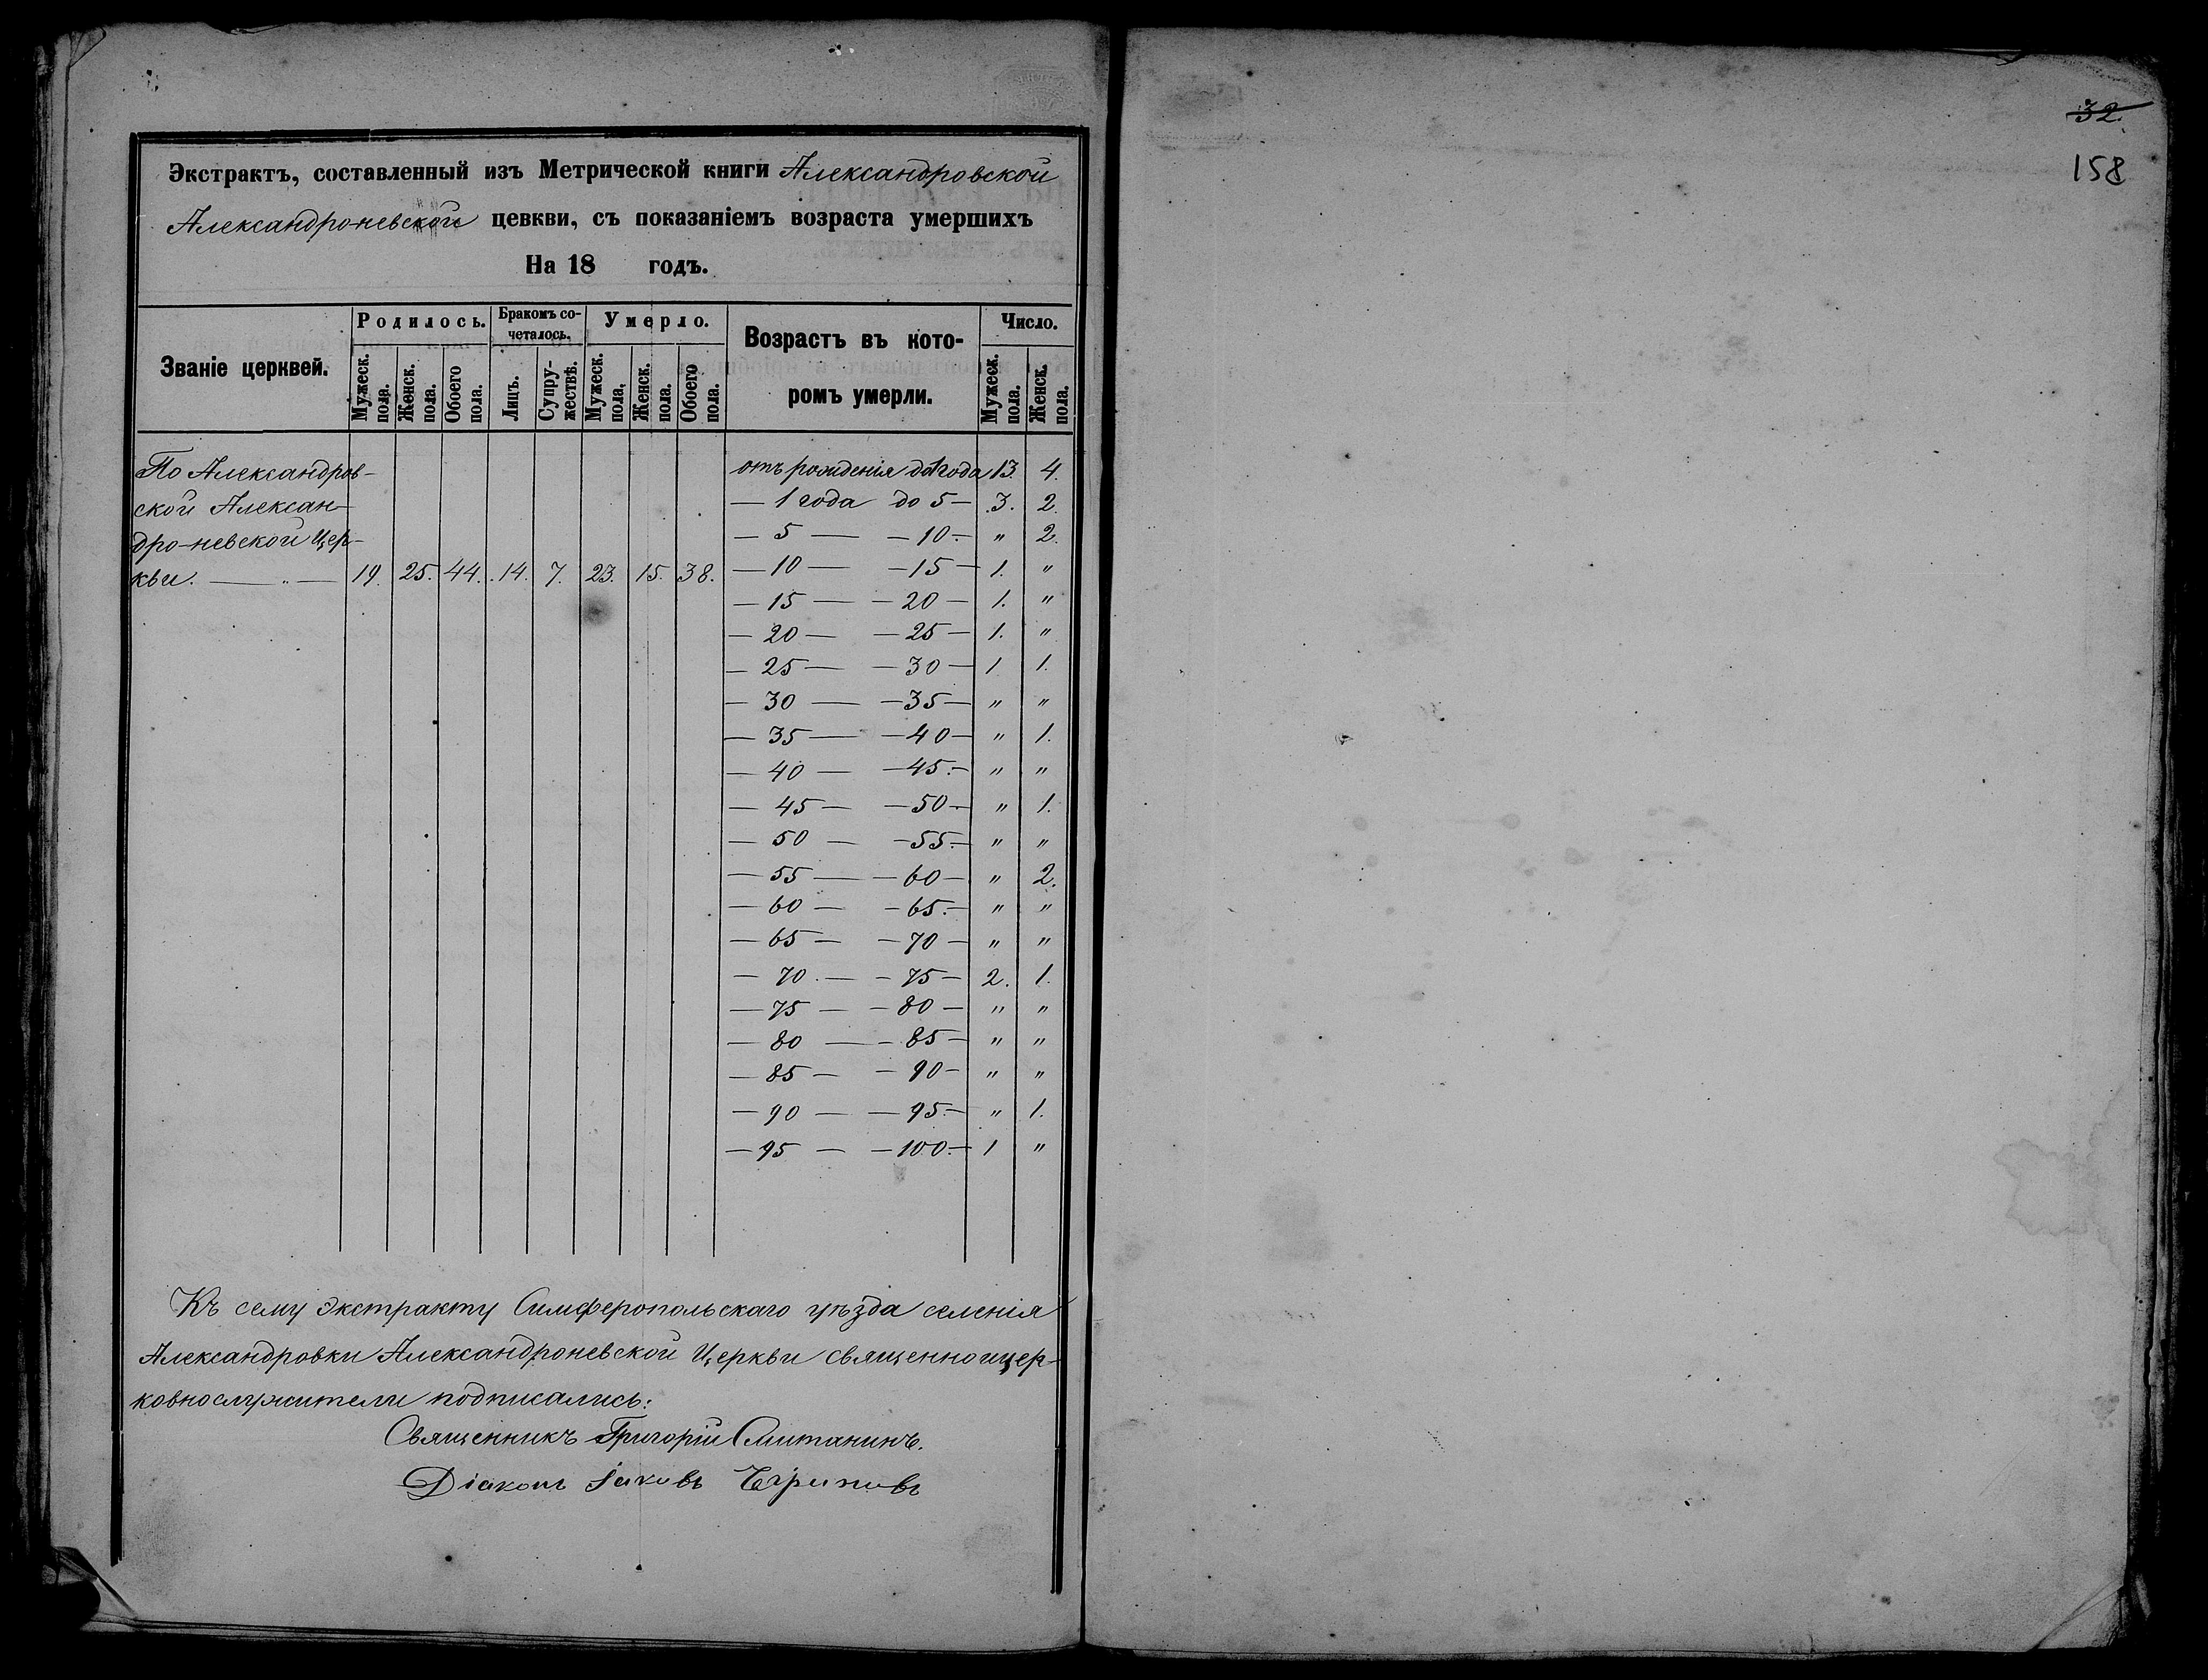 Экстрактъ, составленный изъ Метрической книги Александровской
Александроневской цевкви, съ показаніемъ возраста умершихъ
На 18 годъ.
Званіе церквей.
Родилось.
Мужеск. пола.
Женск. пола.
Обоего пола.
Бракомъ со-
четалось.
Лицъ.
Супру-
жествъ.
Умерло.
Мужеск. пола,
Женск. пола.
Обоего пола.
Возрастъ въ кото-
ромъ умерли.
Число.
Мужеск. пола.
Женск. пола.
По Александров-
ской Алексан-
дро-невской Цер-
кви. — „ — 19. 25. 44. 14. 7. 23. 15. 38.
отъ рожденія до 1 года 13. 4.
— 1 года до 5 — 3. 2.
— 5 — — 10. — „ 2.
— 10 — — 15 — 1. „
— 15 — — 20 — 1. „
— 20 — — 25 — 1. „
— 25 — — 30 — 1 1.
— 30 — — 35 — „ „
— 35 — — 40 — „ 1.
— 40 — — 45. — „ „
— 45 — — 50 — „ 1.
— 50 — — 55. — „ „
— 55 — — 60 — „ 2.
— 60 — — 65. — „ „
— 65 — — 70 — „ „
— 70. — — 75 — 2. 1.
— 75 — — 80 — „ „
— 80 — — 85 — „ „
— 85 — — 90 — „ „
— 90 — — 95. — „ 1.
— 95 — — 100. — 1 „
Къ сему экстракту Симферопольскаго уѣзда селенія
Александровки Александроневской Церкви священноицер-
ковнослужители подписались:
Священникъ Григорій
Діаконъ Іаковъ
32.
158